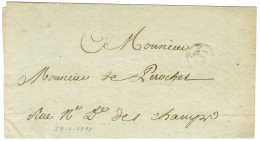 Monsieur
Monsieur de Perochel
Rue Nre De des champs